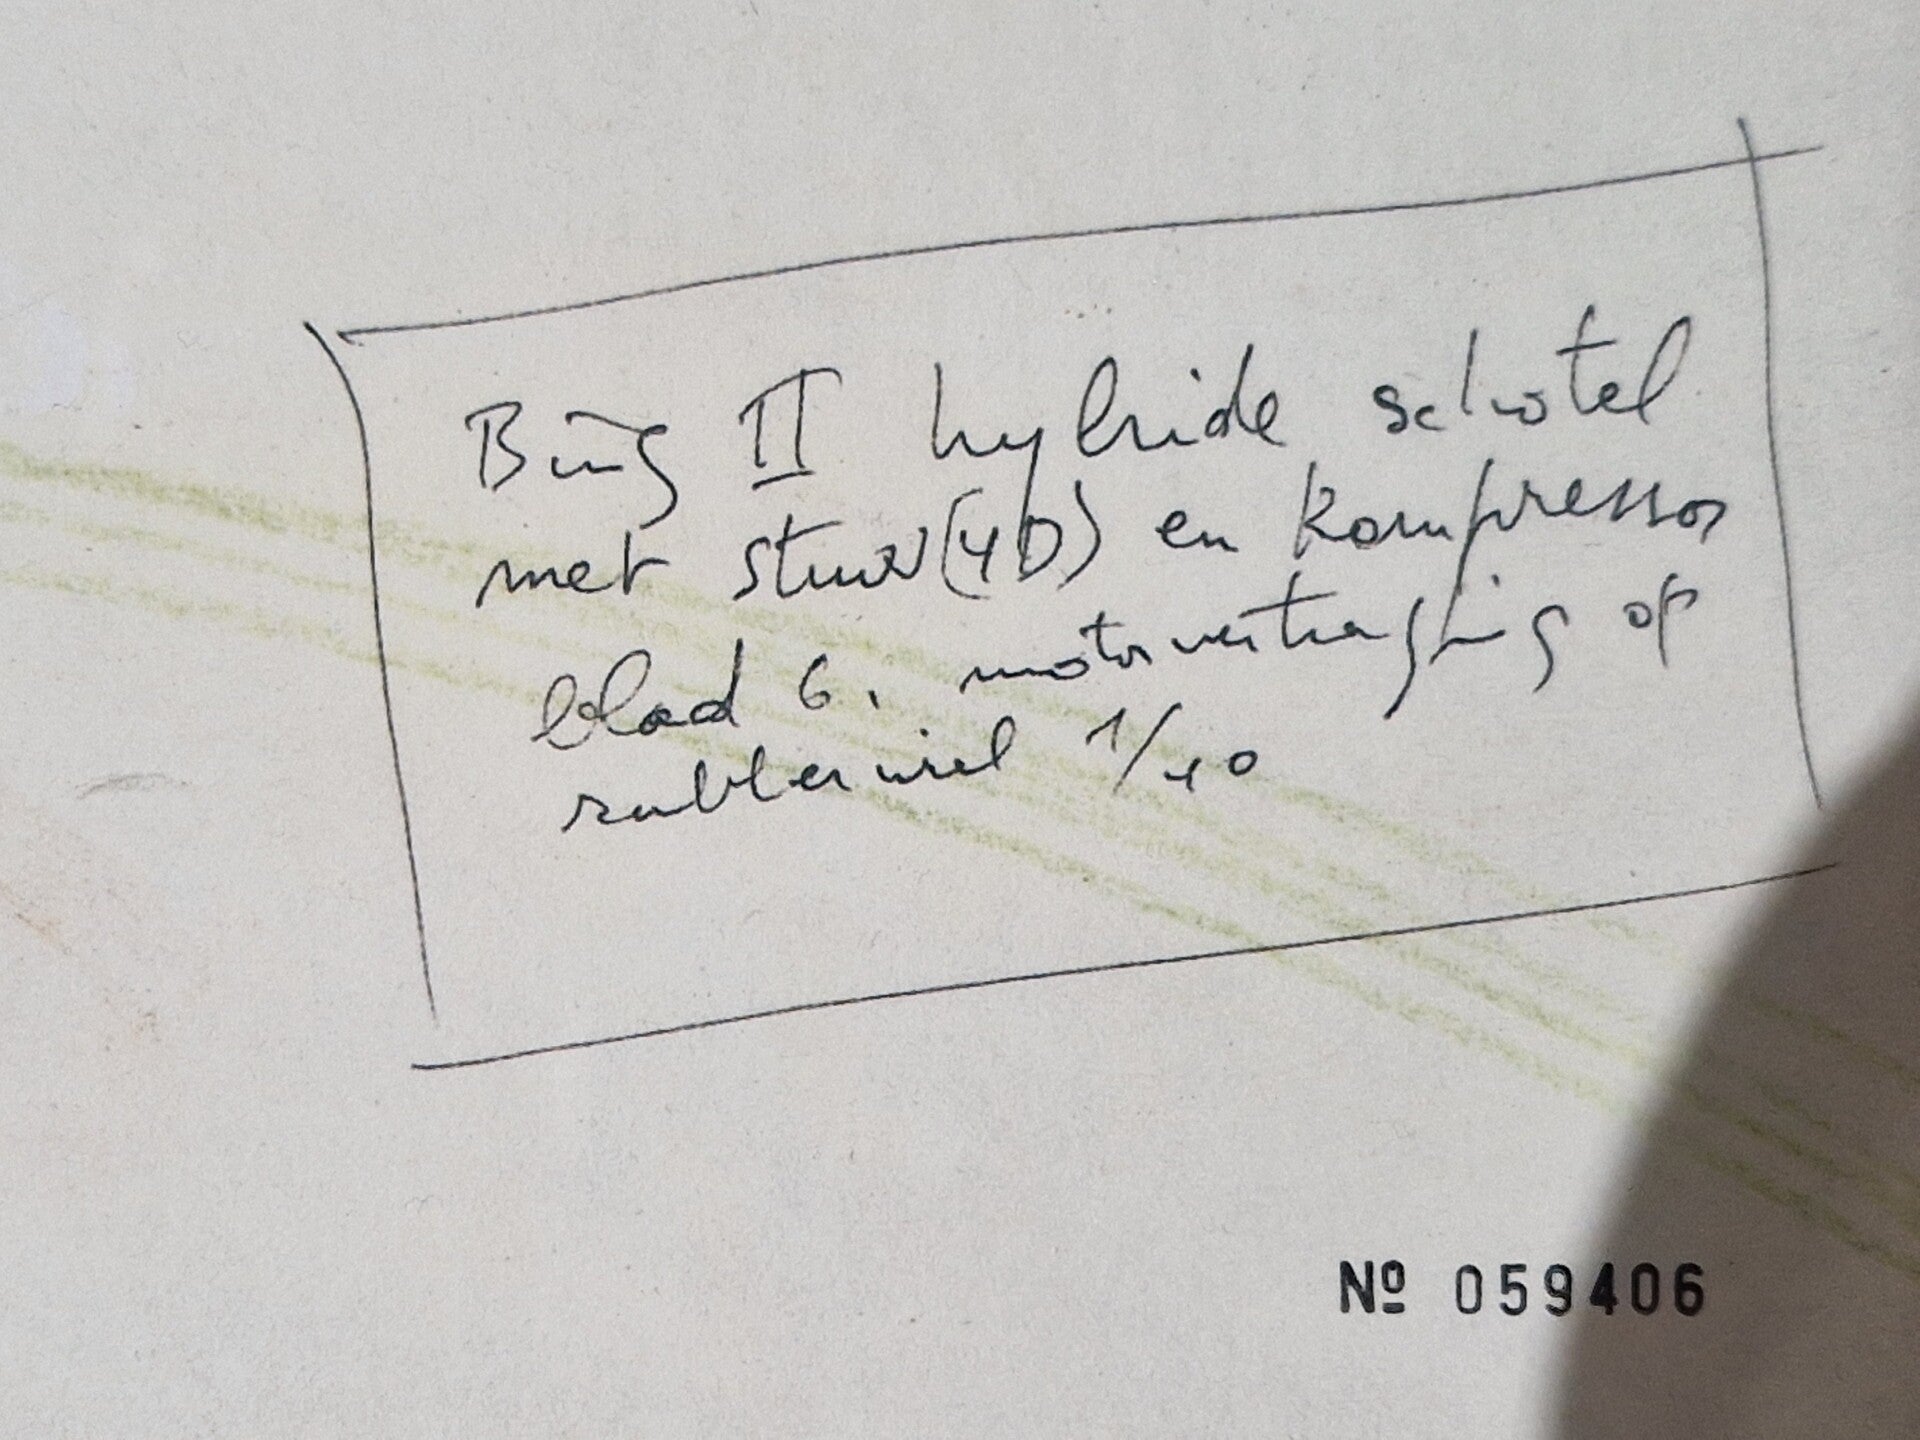 Bing II hybride schotel
met stuur(4D) en kompressor
blad 6. motorvertraging op
rubberwiel 1/40
Nº 059406